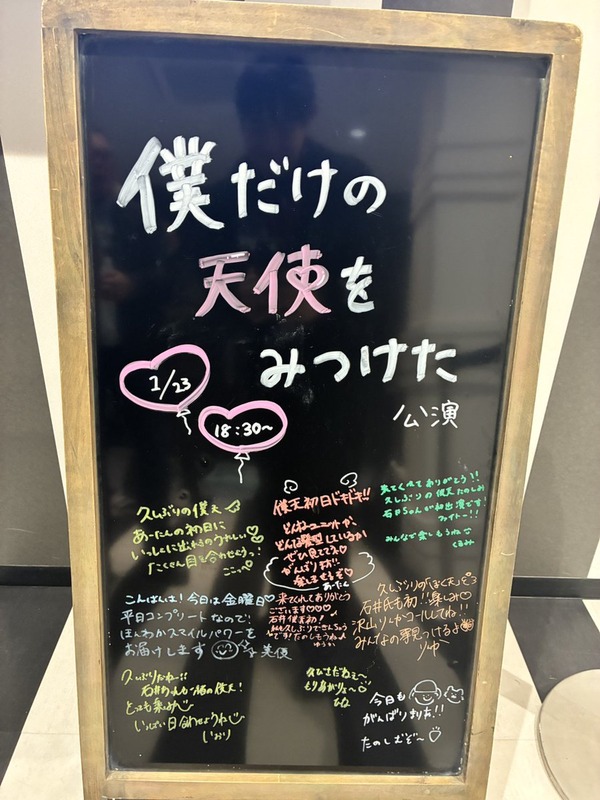 僕だけの
天使を
みつけた
公演
1/23
18:30～
久しぶりの僕天
あーたんの初日に
いっしょに出れるのうれしい
たくさん目を合わせよう！
ここっ
僕天初日ドキドキ!!
どんなユニットか、
どんな髪型しているか
ぜひ見てね
がんばります!!
楽しませるぞ
あーたん
来てくれてありがとう!!
久しぶりの僕天たのしみ
石井ちゃんが初出演です!
ファイトー!!
みんなで楽しもうね
くるみ
こんばんは！今日は金曜日
平日コンプリートなので:
ほんわかスマイルパワーを
お届けします
美優
来てくれてありがとう
ございます
石井僕天初♪
私も久しぶりできんちょう
です！たのしもうねっ
ゆうか
久しぶりの「ぼくてん」
石井氏も初!!楽しみ
沢山りんかコールしてね!!
みんなの夢見つけるよ
りゆ
久しぶりだねー!!
石井ちゃんと一緒の僕天！
とっても楽しみ
いっぱい目合わせようね
いおり
おひさだねぇ～
もりあがりょ～
ひな
今日も
がんばりまりあ!!
たのしむぞ～